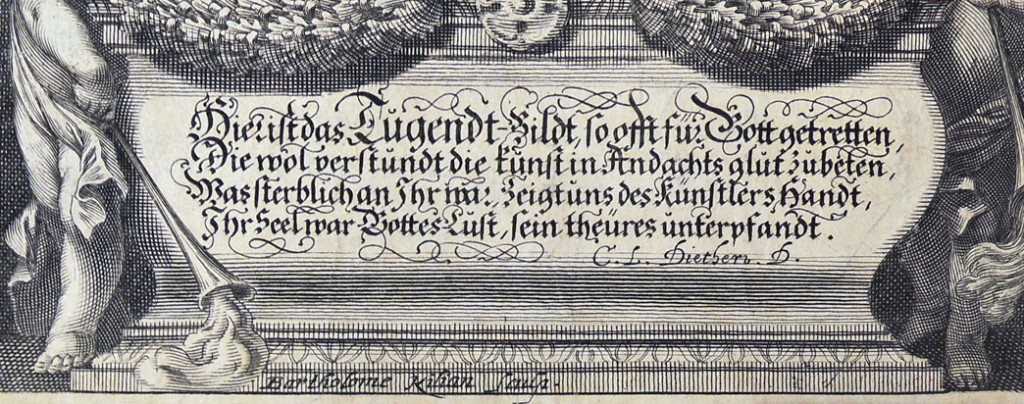 Hier ist das Tugendt-Bildt, so offt für Gott getretten,
Die wol verstundt die kunst in Andachts glut zubeten,
Was sterblich an Ihr war, Zeigt uns des Künstlers Handt,
Ihr Seel war Gottes Lust, sein theüres unterpfandt.
C. L. Dietherr. D.
Bartholome Kilian Sculp.